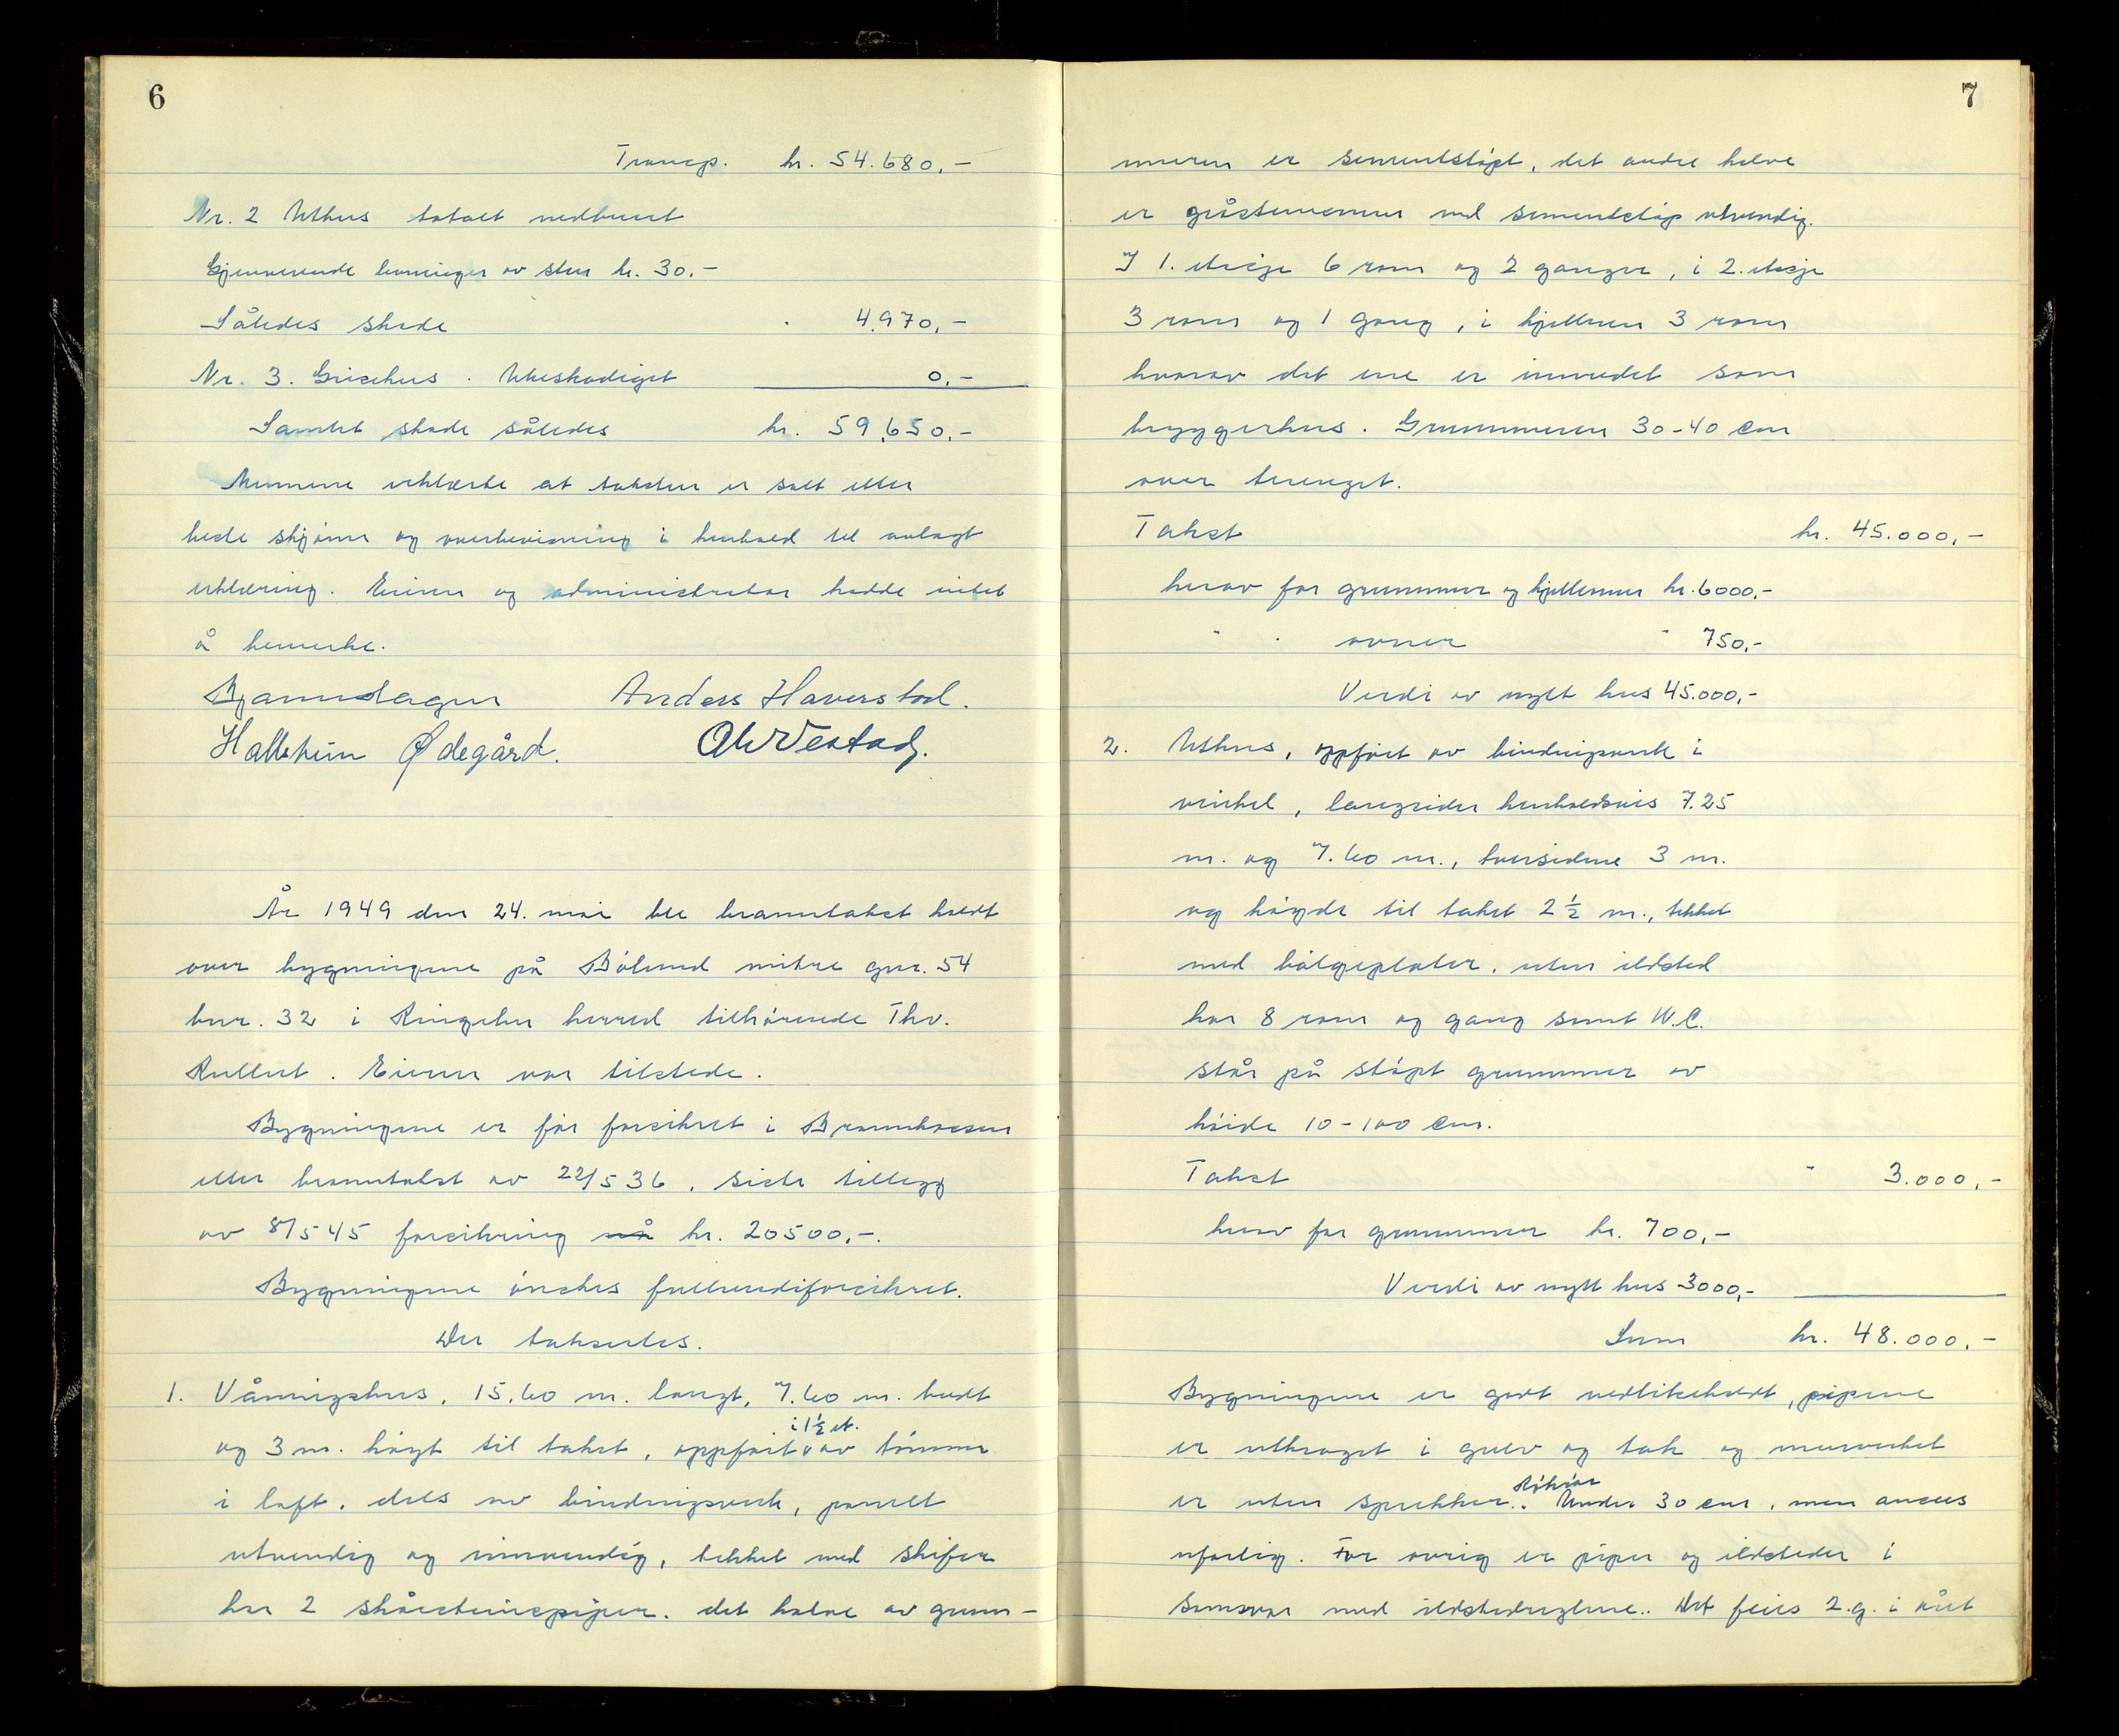 6
Transp. kr. 54.680,-
Nr. 2 Uthus totalt nedbrent
Gjenværende levninger av sten kr. 30.-
Således skade " 4.970,-
Nr. 3. Grisehus. Ubeskadiget 0,-
Samlet skade således kr. 59.650,-
Mennene erklærte at taksten er satt etter
beste skjønn og overbevisning i henhold til avlagt
erklæring. Eieren og administrator hadde intet
å bemerke.
Anders Haverstad.
Hallstein Ødegård.
År 1949 den 24. mai ble branntakst holdt
over bygningene på Bölund nitre gnr. 54
bnr. 32 i Ringebu herred tilhørende Thv.
Rullut. Eieren var tilstede.
Bygningene er før forsikret i Brannkassen
etter branntakst av 22/5 36, siste tillegg
av 8/5 45 forsikring nå kr. 20500,-.
Bygningene ønskes fullverdiforsikret.
Der takseres.
1. Våningshus, 15.60 m. langt, 7.60 m. bredt
i 1½ et.
og 3 m. høgt til taket, oppført av tømmer
i laft, dels av bindingsverk, panelt
utvendig og innvendig, tekket med skifer
har 2 skorsteinspiper. det halve av grunn-
7
muren er sementstøpt, det andre halve
er gråsteinsmur med sementstøp utvendig.
I 1. etasje 6 rom og 2 ganger, i 2. etasje
3 rom og 1 gang, i kjelleren 3 rom
hvorav det ene er innredet som
bryggerhus. Grunnmuren 30-40 cm
over terrenget.
Takst kr. 45.000,-
herav for grunnmur og kjellermur kr. 6000,-
" " ovner " 750,-
Verdi av nytt hus 45.000,-
2. Uthus, oppført av bindingsverk i
vinkel, langsider henholdsvis 7.25
m. og 7.60 m., tversidene 3 m.
og høgde til taket 2½ m., tekket
med bølgeplater, uten ildsted
har 8 rom og gang samt W.C.
står på støpt grunnmur av
høide 10-100 cm.
Takst " 3.000,-
herav for grunnmur kr. 700,-
Verdi av nytt hus 3000,-
Sum kr. 48.000,-
Bygningene er godt vedlikeholdt, pipene
er utkraget i gulv og tak og murverket
er uten sprekker. Under 30 cm, men ansees
ufarlig. For øvrig er piper og ildsteder i
samsvar med ildstedreglene. Det feies 2.g. i året